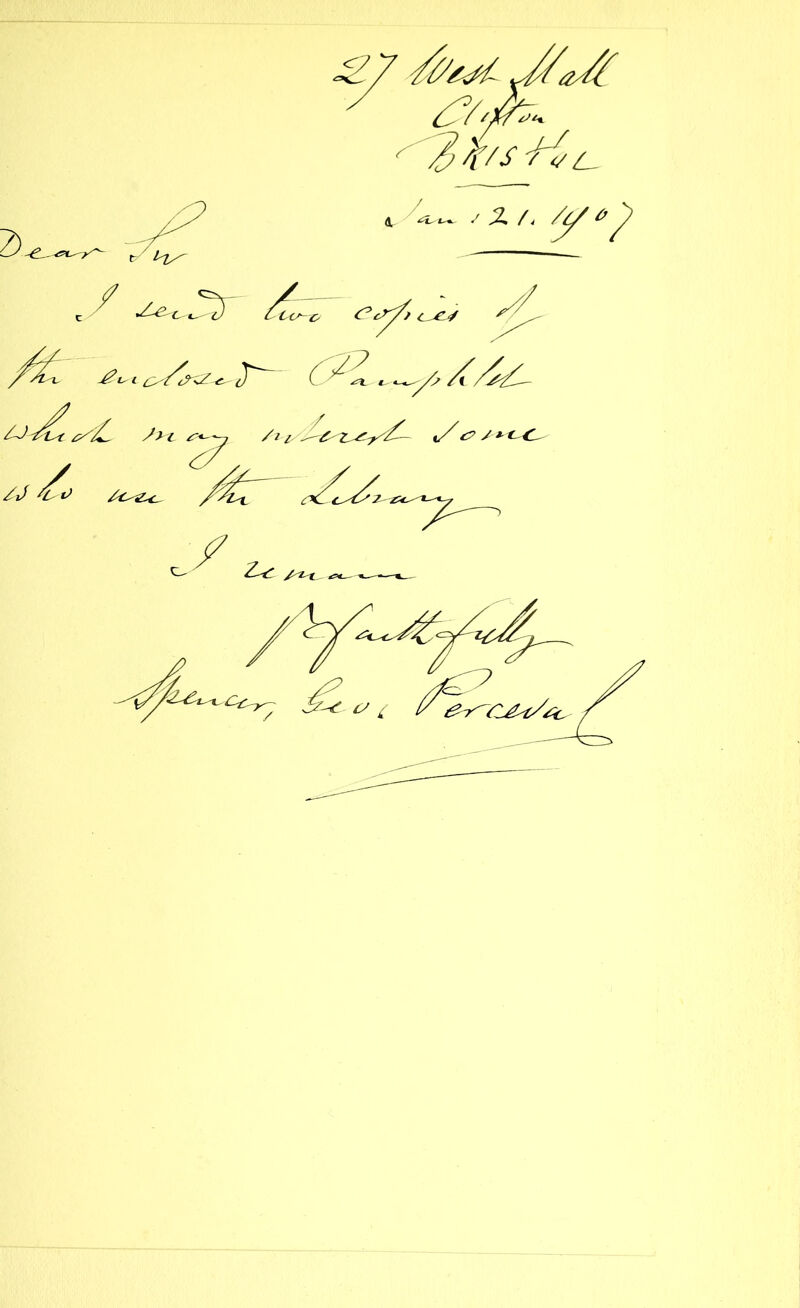 27 West Mall
Clifton
Bristol
Jan. 21. 1907
Dear Sir
I send two copies of
the enclosed Pamphlet
which may interest some
who use the Library
I remain
Yr faithfully
Spencer Geo: Perceval